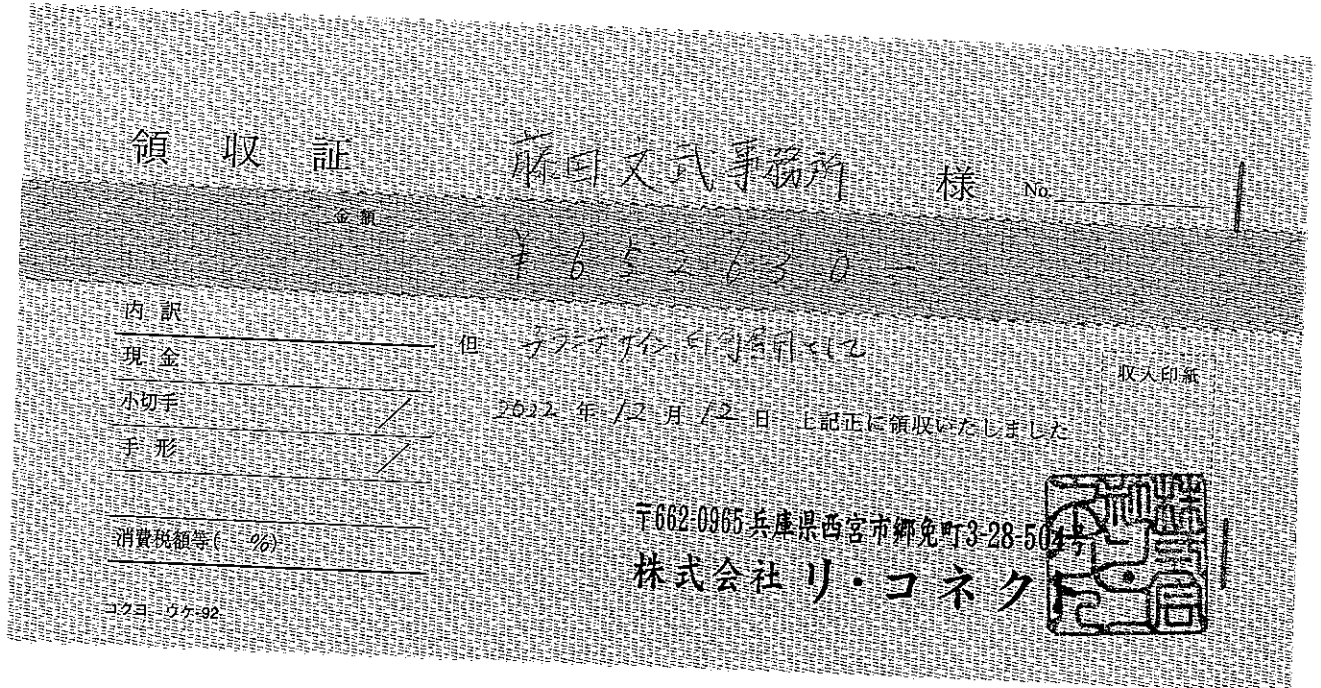 領収証 藤田文武事務所 様 No.
金額
¥652630-
内訳
現金
小切手
手形
消費税額等( %)
コクヨ ウケ-92
但 チラシデザイン、印刷費用として
2022年12月12日 上記正に領収いたしました
収入印紙
〒662-0965 兵庫県西宮市郷免町3-28-504号
株式会社リ・コネクト